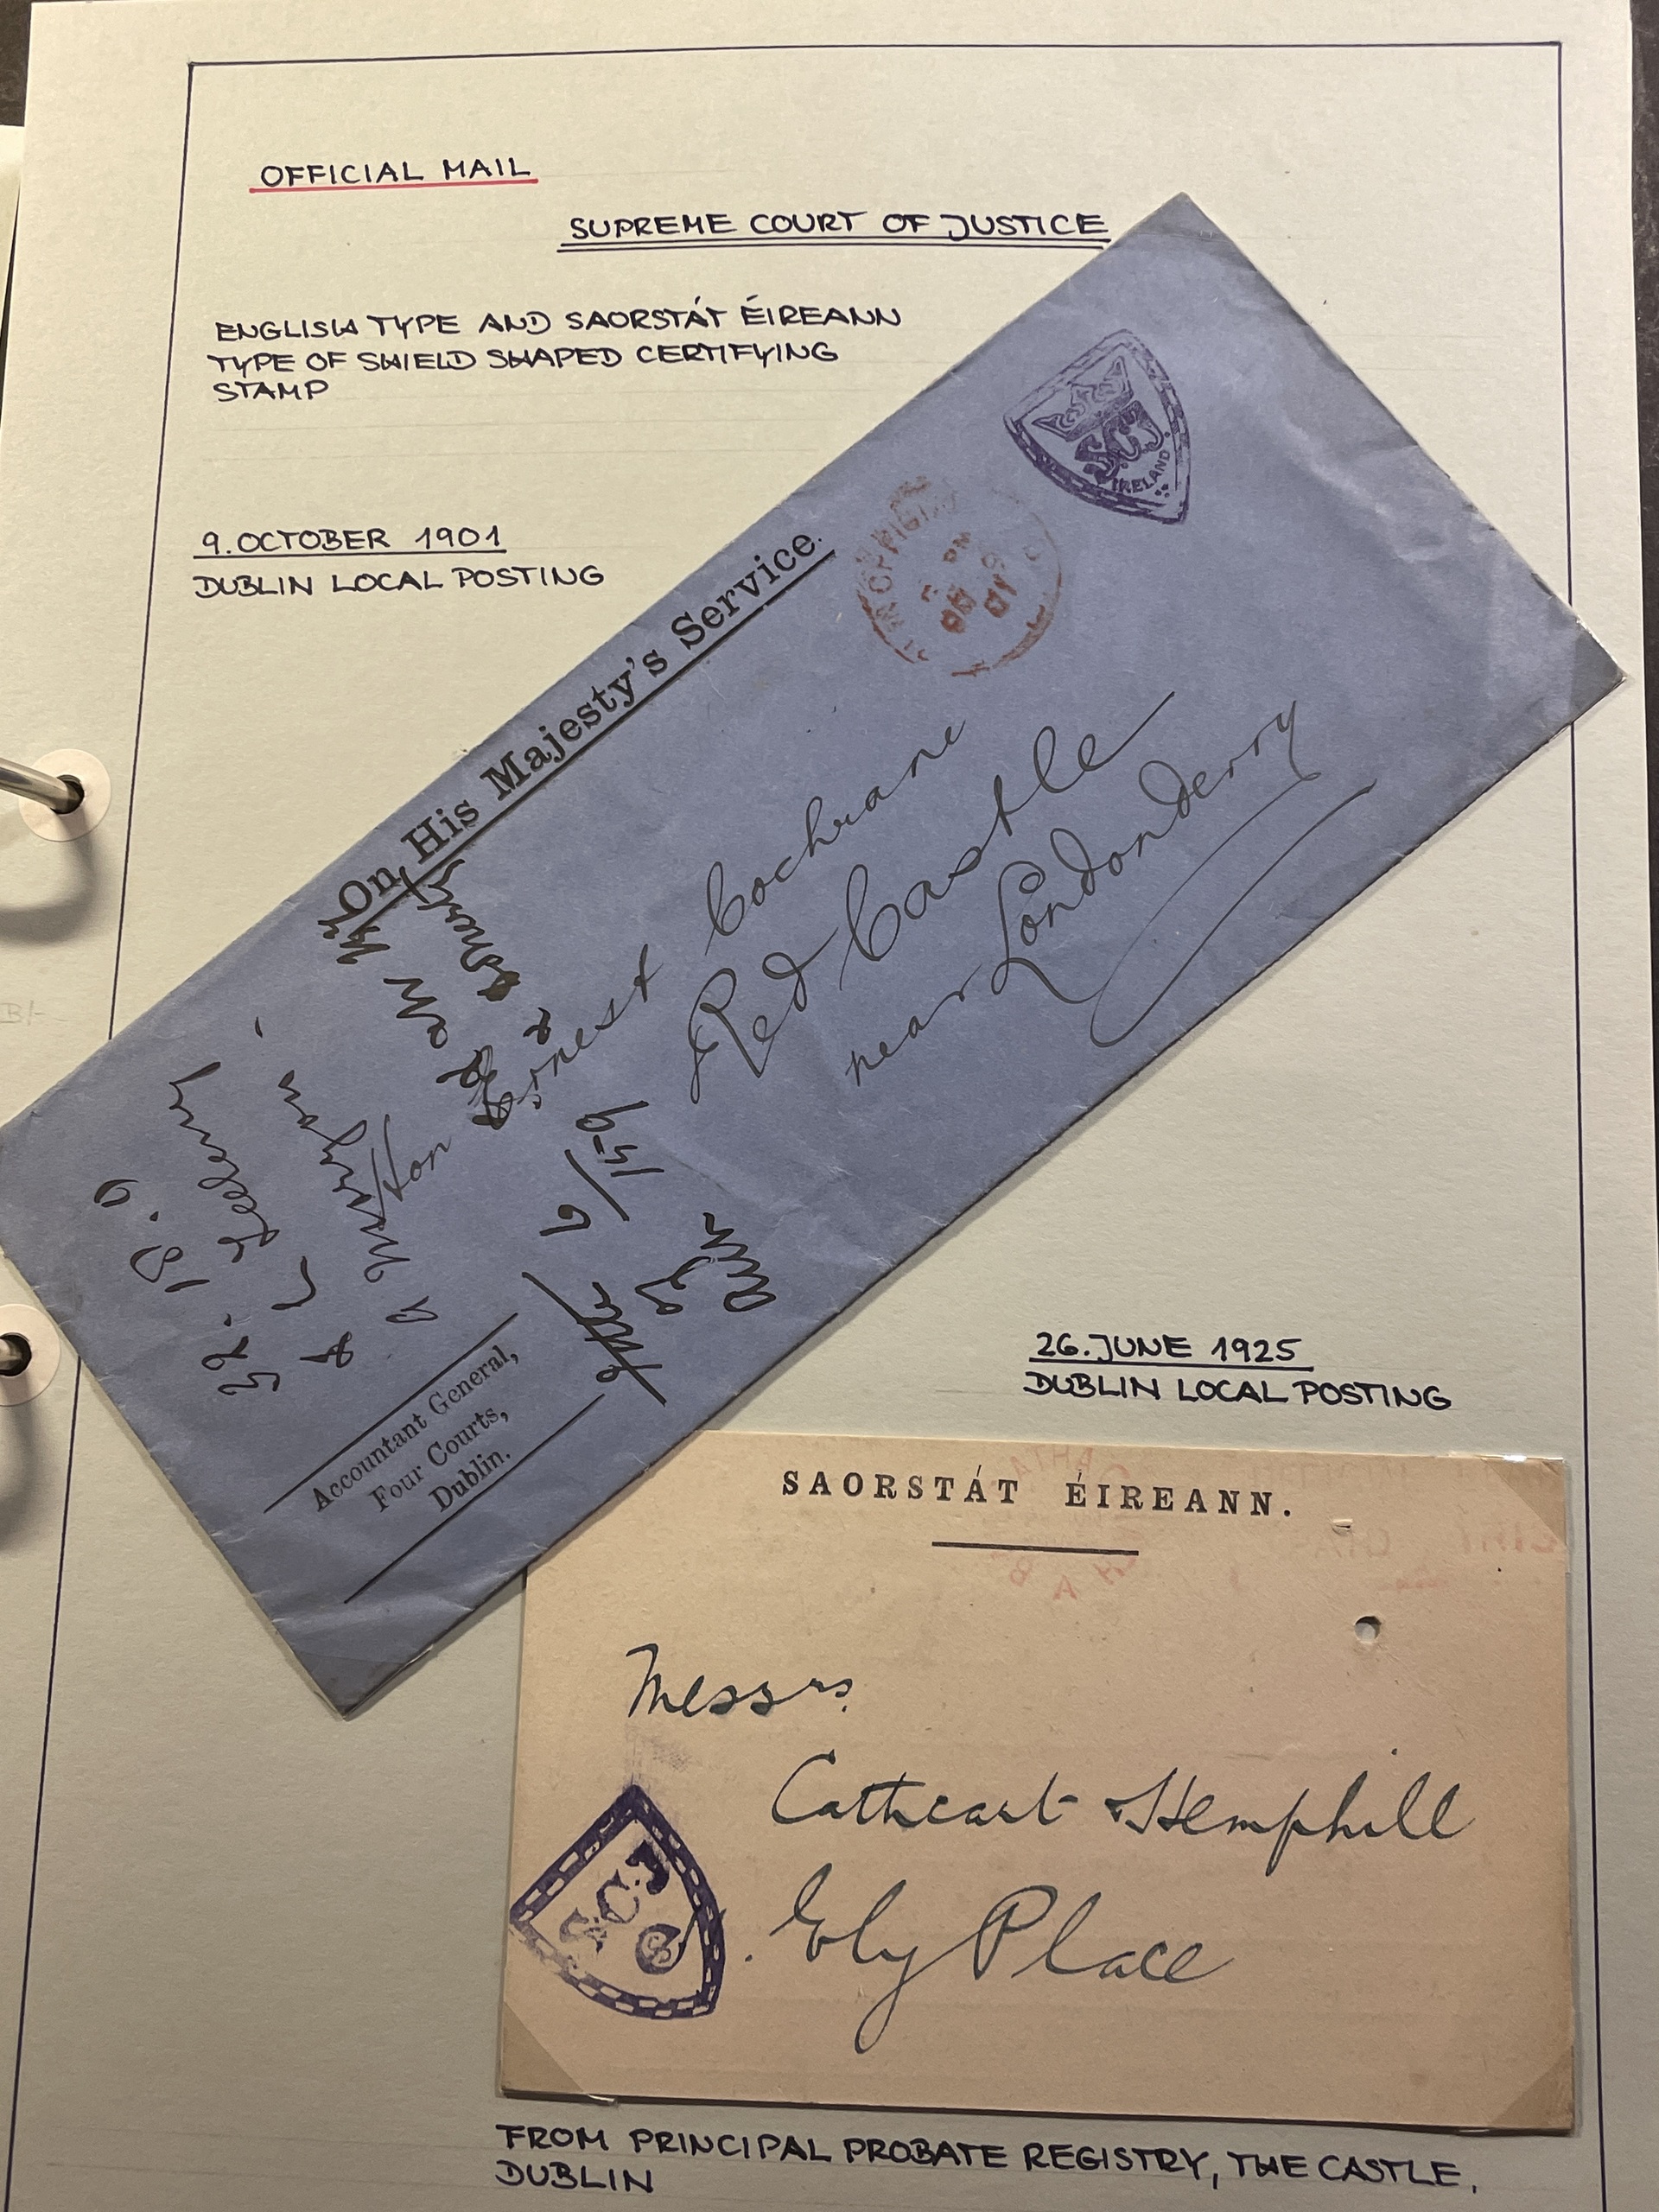 OFFICIAL MAIL
SUPREME COURT OF JUSTICE
ENGLISH TYPE AND SAORSTÁT ÉIREANN
TYPE OF SHIELD SHAPED CERTIFYING
STAMP
9. OCTOBER 1901
DUBLIN LOCAL POSTING
SCJ
IRELAND.
On His Majesty's Service.
Ernest Cochrane
Red Castle
near Londonderry
Accountant General,
Four Courts,
Dublin.
26. JUNE 1925
DUBLIN LOCAL POSTING
SAORSTÁT ÉIREANN.
Messrs.
Cathcart & Hemphill
Ely Place
S.C.J
FROM PRINCIPAL PROBATE REGISTRY, THE CASTLE,
DUBLIN